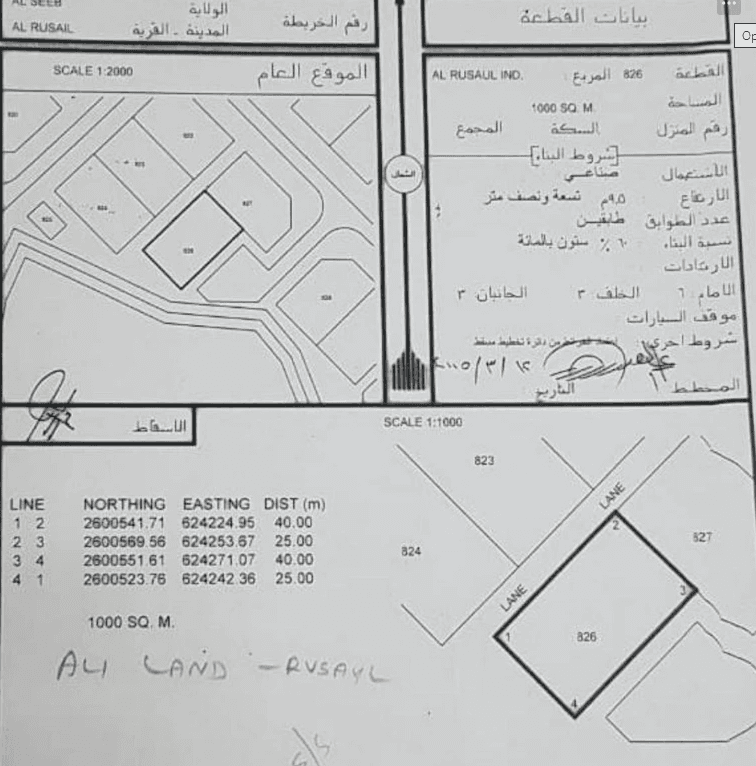 AL SEEB
الولاية
AL RUSAIL
المدينة - القرية
رقم الخريطة
بيانات القطعة
SCALE 1:2000
الموقع العام
القطعة 826
المربع : AL RUSAUL IND.
المساحة 1000 SQ. M.
رقم المنزل السكة المجمع
شروط البناء
الأستعمال صناعي
الارتفاع : ٩,٥م تسعة ونصف متر
عدد الطوابق طابقين
نسبة البناء : ٦٠٪ ستون بالمائة
الارتدادات
الامام : ٦ الخلف : ٣ الجانبان : ٣
موقف السيارات :
شروط اخرى
المخطط
التاريخ
الشمال
823
824
825
827
826
828
الأسقاط
SCALE 1:1000
LINE NORTHING EASTING DIST (m)
1 2 2600541.71 624224.95 40.00
2 3 2600569.56 624253.67 25.00
3 4 2600551.61 624271.07 40.00
4 1 2600523.76 624242.36 25.00
1000 SQ. M.
ALI LAND - RUSAYL
823
824
LANE
LANE
827
826
1
2
3
4
Op